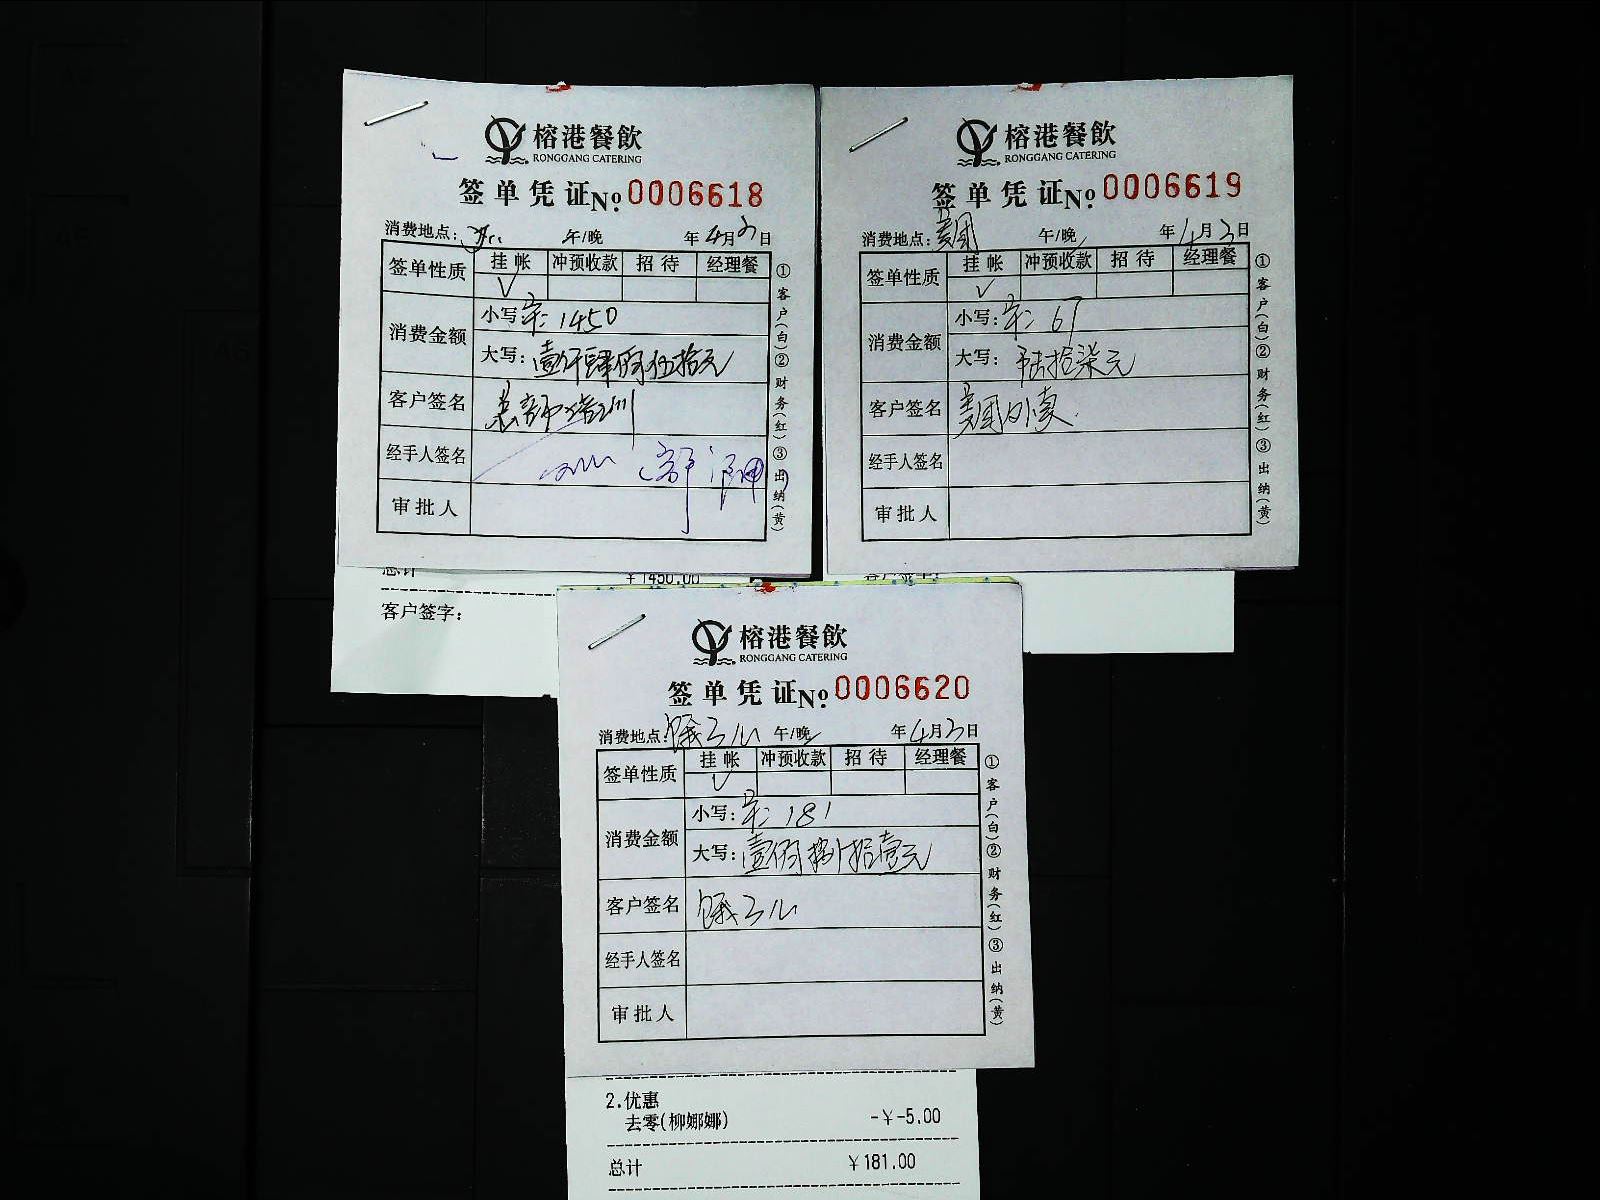 榕港餐飲
RONGGANG CATERING
签单凭证No.0006618
消费地点: 午/晚 年4月3日
签单性质 挂帐 冲预收款 招待 经理餐
√
消费金额
小写: 1450
大写: 壹仟肆佰伍拾元
客户签名
经手人签名
审批人
①客户(白)②财务(红)③出纳(黄)
总计 ¥1450.00
客户签字:
榕港餐飲
RONGGANG CATERING
签单凭证No.0006619
消费地点: 美团 午/晚 年4月3日
签单性质 挂帐 冲预收款 招待 经理餐
√
消费金额
小写: 67
大写: 陆拾柒元
客户签名 美团外卖
经手人签名
审批人
①客户(白)②财务(红)③出纳(黄)
榕港餐飲
RONGGANG CATERING
签单凭证No.0006620
消费地点: 饿了么 午/晚 年4月3日
签单性质 挂帐 冲预收款 招待 经理餐
√
消费金额
小写: 181
大写: 壹佰捌拾壹元
客户签名 饿了么
经手人签名
审批人
①客户(白)②财务(红)③出纳(黄)
2.优惠
去零(柳娜娜) -¥-5.00
总计 ¥181.00